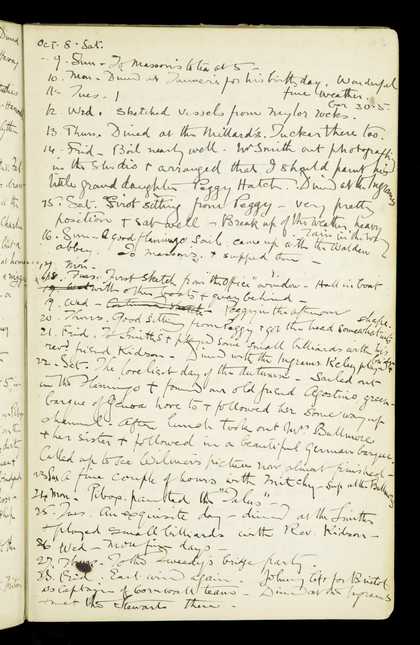 Oct. 8. Sat.
9. Sun - To Masson's to tea at 5 -
10. Mon - Dined at Tanner's for his birthday. Wonderful
11. Tues. fine weather.
Bar 30.5
12. Wed. Sketched vessels from Taylor rocks.
13 Thurs. Dined at the Millards. Tucker there too.
14. Frid - Boil nearly well. Mr Smith out photograph
in the Studio & arranged that I should paint his
little grand daughter Peggy Hatch. Dined at the Ingrams
15. Sat. First sitting from Peggy - very pretty
position & sat well - Break up of the weather, heavy
rain in the
16. Sun - A good flamingo Sail, came up with the Walden
abbey. To & supped there -
17. Mon -
18. Tues. First sketch from "the office" window - Hall in boat
with other boats & quay behind -
19. Wed - Peggy in the afternoon
20. Thurs. Good sitting from Peggy & got the head somewhat in shape.
21. Frid. To Smiths & played some small billiards with his
revd friend Kidson - Dined with the Ingrams
22. Sat. The loveliest day of the Autumn - Sailed out
in the Flamingo & found our old friend Agostino, green
barque of Genoa hove to & followed her some way up
channel - After lunch took out Mrs Ballmore
& her sister & followed in a beautiful German barque -
Called up to see Wilmer's picture now almost finished -
23 Sun A fine couple of hours with Mitchy - Sup at the
24 Mon - Rbog. painted the "Palus" -
25. Tues. An exquisite day - dined at the Smiths
& played small billiards with Rev. Kidson -
26 Wed - More fine days -
27. Thurs - To the Tweedy's bridge party
28. Frid. East wind again. Johnny left for Bristol
as Captain of Cornwall team - Dined at the Ingrams
met the Stewarts there -